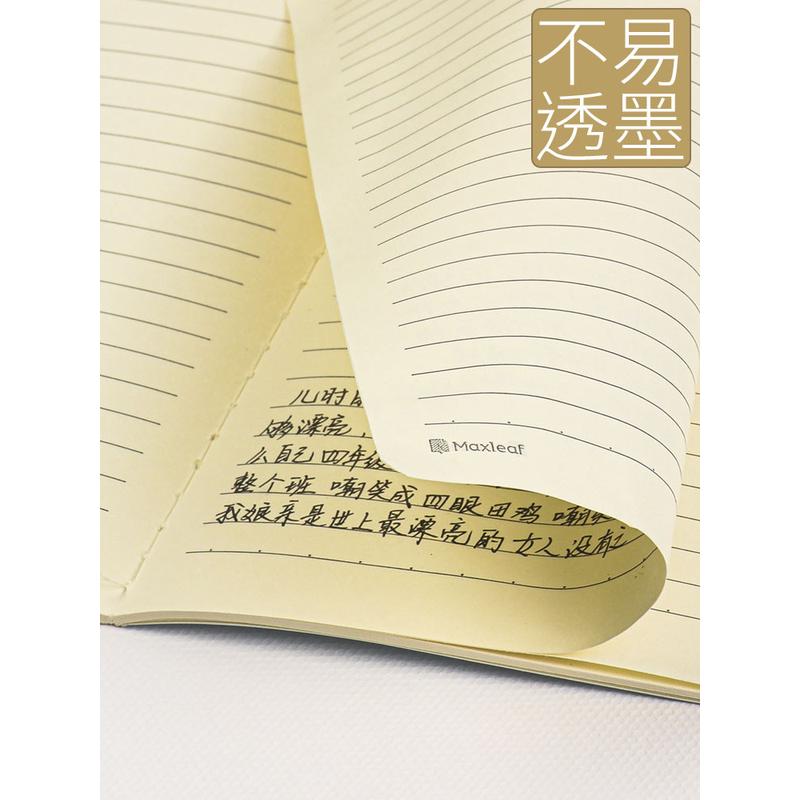 不易
透墨
Maxleaf
儿时
够漂亮，
么自己四年级
整个班 嘲笑成四眼田鸡 嘲笑
我娘亲是世上最漂亮的女人没有